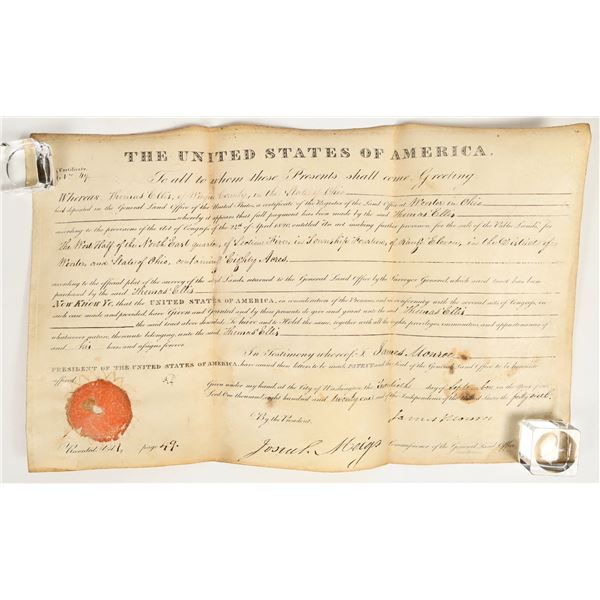 THE UNITED STATES OF AMERICA.
Certificate
To all to whom these Presents shall come, Greeting
WHEREAS Thomas Ellis, of Wayne County, in the State of Ohio
deposited in the General Land Office of the United States, a certificate of the Register of the Land Office at Wooster in Ohio
whereby it appears that full payment has been made by the said Thomas Ellis
according to the provisions of the Act of Congress of the 24th of April 1820, entitled An act making further provision for the sale of the Public Lands, for
the West Half of the North East quarter, of Section Five, in Township Fourteen, of Range Eleven, in the District of
Wooster, and State of Ohio, containing Eighty Acres
according to the official plat of the survey of the said Lands, returned to the General Land Office by the Surveyor General, which said tract has been
purchased by the said Thomas Ellis
NOW KNOW YE, that the UNITED STATES OF AMERICA, in consideration of the Premises, and in conformity with the several acts of Congress, in
such case made and provided, have Given and Granted and by these presents do give and grant unto the said Thomas Ellis
the said tract above described, To have and to Hold the same, together with all the rights, privileges, immunities, and appurtenances of
whatsoever nature, thereunto belonging, unto the said Thomas Ellis
and his heirs and assigns forever.
In Testimony whereof I, James Monroe
PRESIDENT OF THE UNITED STATES OF AMERICA, have caused these letters to be made PATENT, and the Seal of the General Land Office to be hereunto
affixed.
Given under my hand, at the City of Washington, the day of September in the Year of our
Lord One thousand eight hundred and twenty one and of the Independence of the United States the forty sixth.
By the President. James Monroe
Josiah Meigs Commissioner of the General Land Office
Recorded page 49.